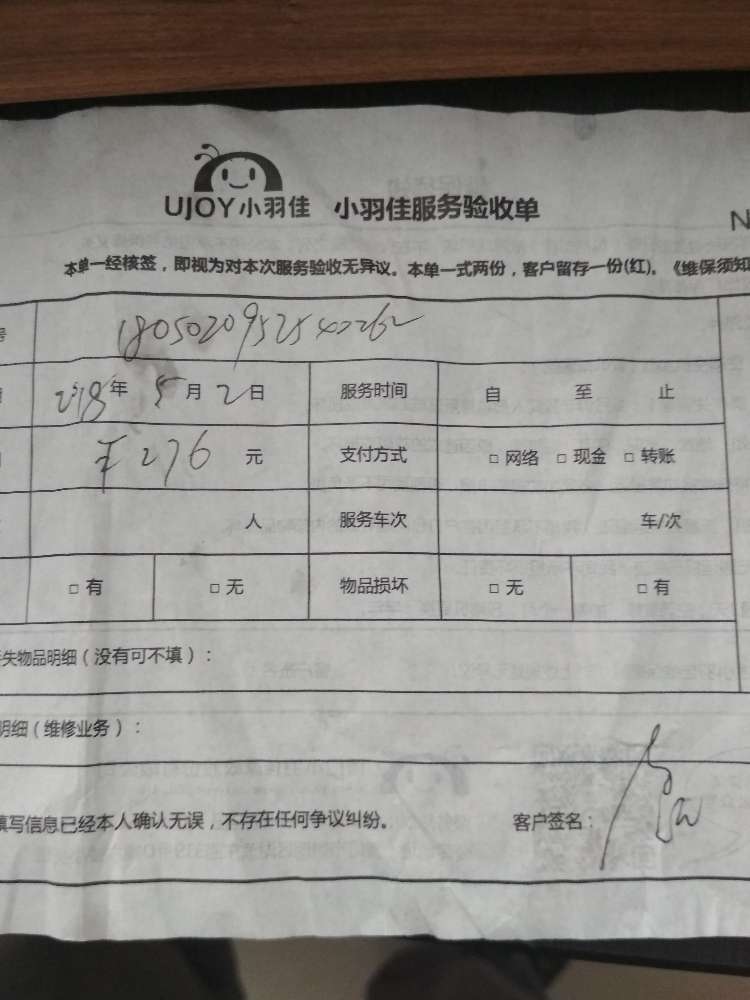 UJOY小羽佳 小羽佳服务验收单
N
本单一经核签，即视为对本次服务验收无异议。本单一式两份，客户留存一份(红)。《维保须知
号 180502095254
2018年 5月 2日 服务时间 自 至 止
￥276 元 支付方式 □ 网络 □ 现金 □ 转账
人 服务车次 车/次
□ 有 □ 无 物品损坏 □ 无 □ 有
失物品明细（没有可不填）：
明细（维修业务）：
填写信息已经本人确认无误，不存在任何争议纠纷。 客户签名：